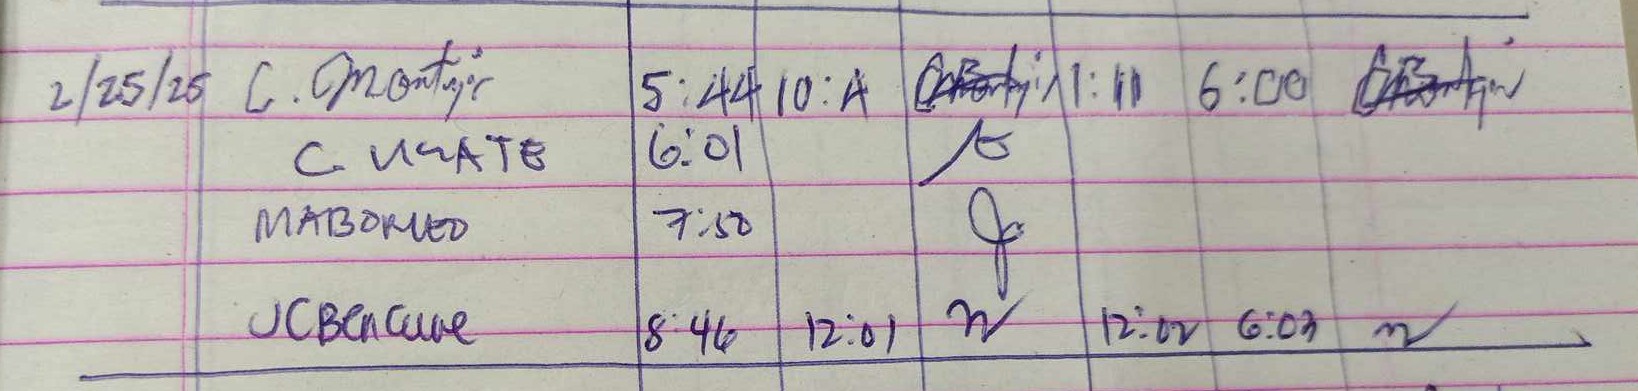 2/25/25 C. Montejir 5:44 10:A 1:11 6:00
C. UGATE 6:01
MABORNEO 7:50
JCBencure 8:46 12:01 12:02 6:03